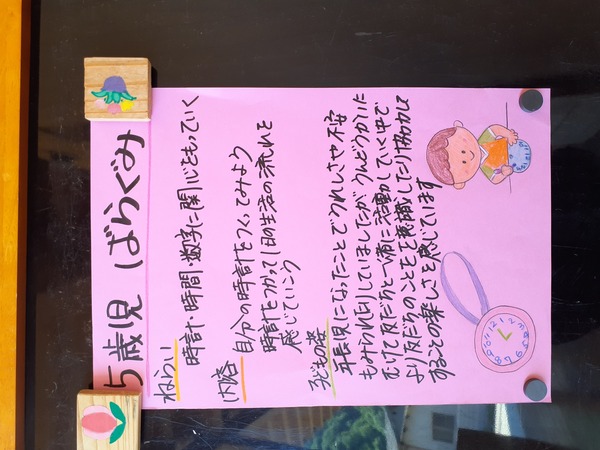 5歳児 ばらぐみ
ねらい
時計・時間・数字に関心をもっていく
内容
自分の時計をつくってみよう
時計をつかって1日の生活の流れを
感じていこう
子どもの姿
年長児になったことでうれしさや不安
もみられたりしていましたが うんどうかいに
むけて友だちと一緒に活動していく中で
より友だちのことを意識したり協力して
することの楽しさを感じています